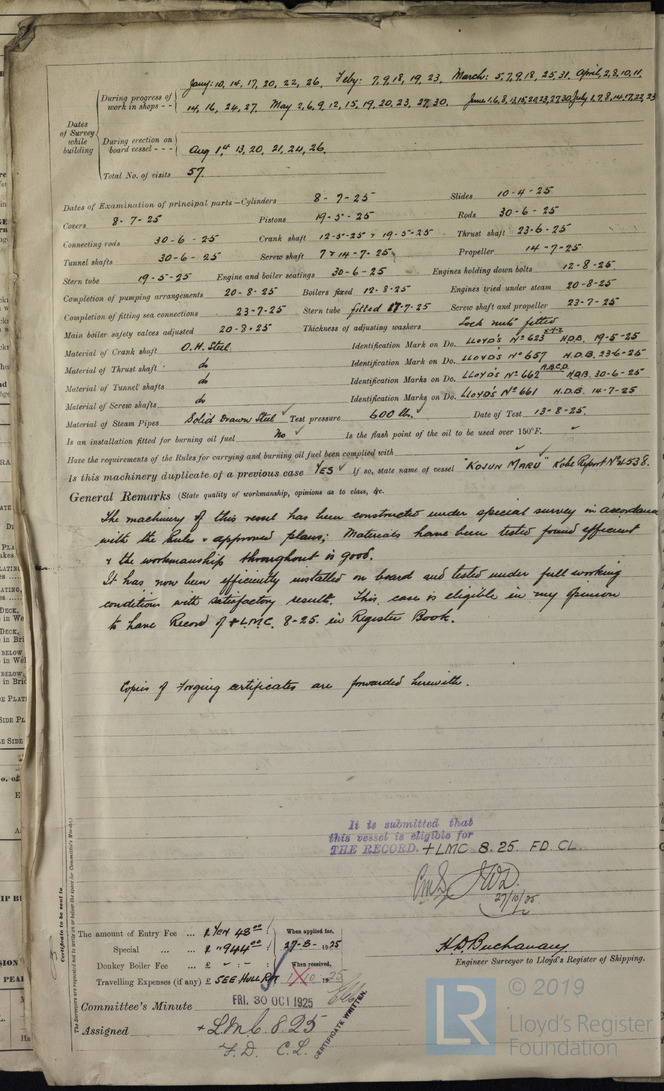 Jany: 10, 14, 17, 20, 22, 26. Feby: 7, 9, 18, 19, 23. March: 5, 7, 9, 18, 25, 31. April, 2, 8, 10, 11,
During progress of work in shops - -
14, 16, 24, 27. May 2, 6, 9, 12, 15, 19, 20, 23, 27, 30.
Dates of Survey while building
During erection on board vessel - - -
Aug 1st 13, 20, 21, 24, 26.
Total No. of visits 57.
Dates of Examination of principal parts—Cylinders 8-7-25 Slides 10-4-25
Covers 8-7-25 Pistons 19-5-25 Rods 30-6-25
Connecting rods 30-6-25 Crank shaft 12-5-25 & 19-5-25 Thrust shaft 23-6-25
Tunnel shafts 30-6-25 Screw shaft 7 & 14-7-25 Propeller 14-7-25
Stern tube 19-5-25 Engine and boiler seatings 30-6-25 Engines holding down bolts 12-8-25
Completion of pumping arrangements 20-8-25 Boilers fixed 12-8-25 Engines tried under steam 20-8-25
Completion of fitting sea connections 23-7-25 Stern tube fitted 7-25 Screw shaft and propeller 23-7-25
Main boiler safety valves adjusted 20-8-25 Thickness of adjusting washers Lock nuts fitted
Material of Crank shaft O.H. Steel. Identification Mark on Do. LLOYD'S No 623 H.D.B. 19-5-25
Material of Thrust shaft do Identification Mark on Do. LLOYD'S No 657 H.D.B. 23-6-25
Material of Tunnel shafts do Identification Marks on Do. LLOYD'S No 662 ABCD H.D.B. 30-6-25
Material of Screw shafts do Identification Marks on Do. LLOYD'S No 661 H.D.B. 14-7-25
Material of Steam Pipes Solid Drawn Steel ✓ Test pressure 600 lbs ✓ Date of Test 13-8-25.
Is an installation fitted for burning oil fuel No ✓ Is the flash point of the oil to be used over 150°F. ✓
Have the requirements of the Rules for carrying and burning oil fuel been complied with ✓
Is this machinery duplicate of a previous case YES ✓ If so, state name of vessel "KOJUN MARU" Kobe Report No 4538.
General Remarks (State quality of workmanship, opinions as to class, &c.
The machinery of this vessel has been constructed under special survey in accordance
with the Rules & approved plans; Materials have been tested found efficient
& the workmanship throughout is good.
It has now been efficiently installed on board and tested under full working
conditions with satisfactory result. This case is eligible in my opinion
to have Record of +LMC. 8-25. in Register Book.
Copies of Forging certificates are forwarded herewith.
It is submitted that
this vessel is eligible for
THE RECORD. + LMC 8.25. FD. CL.
27/10/25
The amount of Entry Fee .. £ Yen 48.00 When applied for,
Special ... ... £ " 944.00 27-8-1925
Donkey Boiler Fee ... £ When received,
Travelling Expenses (if any) £ SEE HULL RPT 10 1925
H.D. Buchanan
Engineer Surveyor to Lloyd's Register of Shipping.
Committee's Minute FRI. 30 OCT 1925
Assigned + LMC. 8.25
F.D. C.L.
CERTIFICATE WRITTEN.
Certificate to be sent to
© 2019
LR Lloyd's Register
Foundation